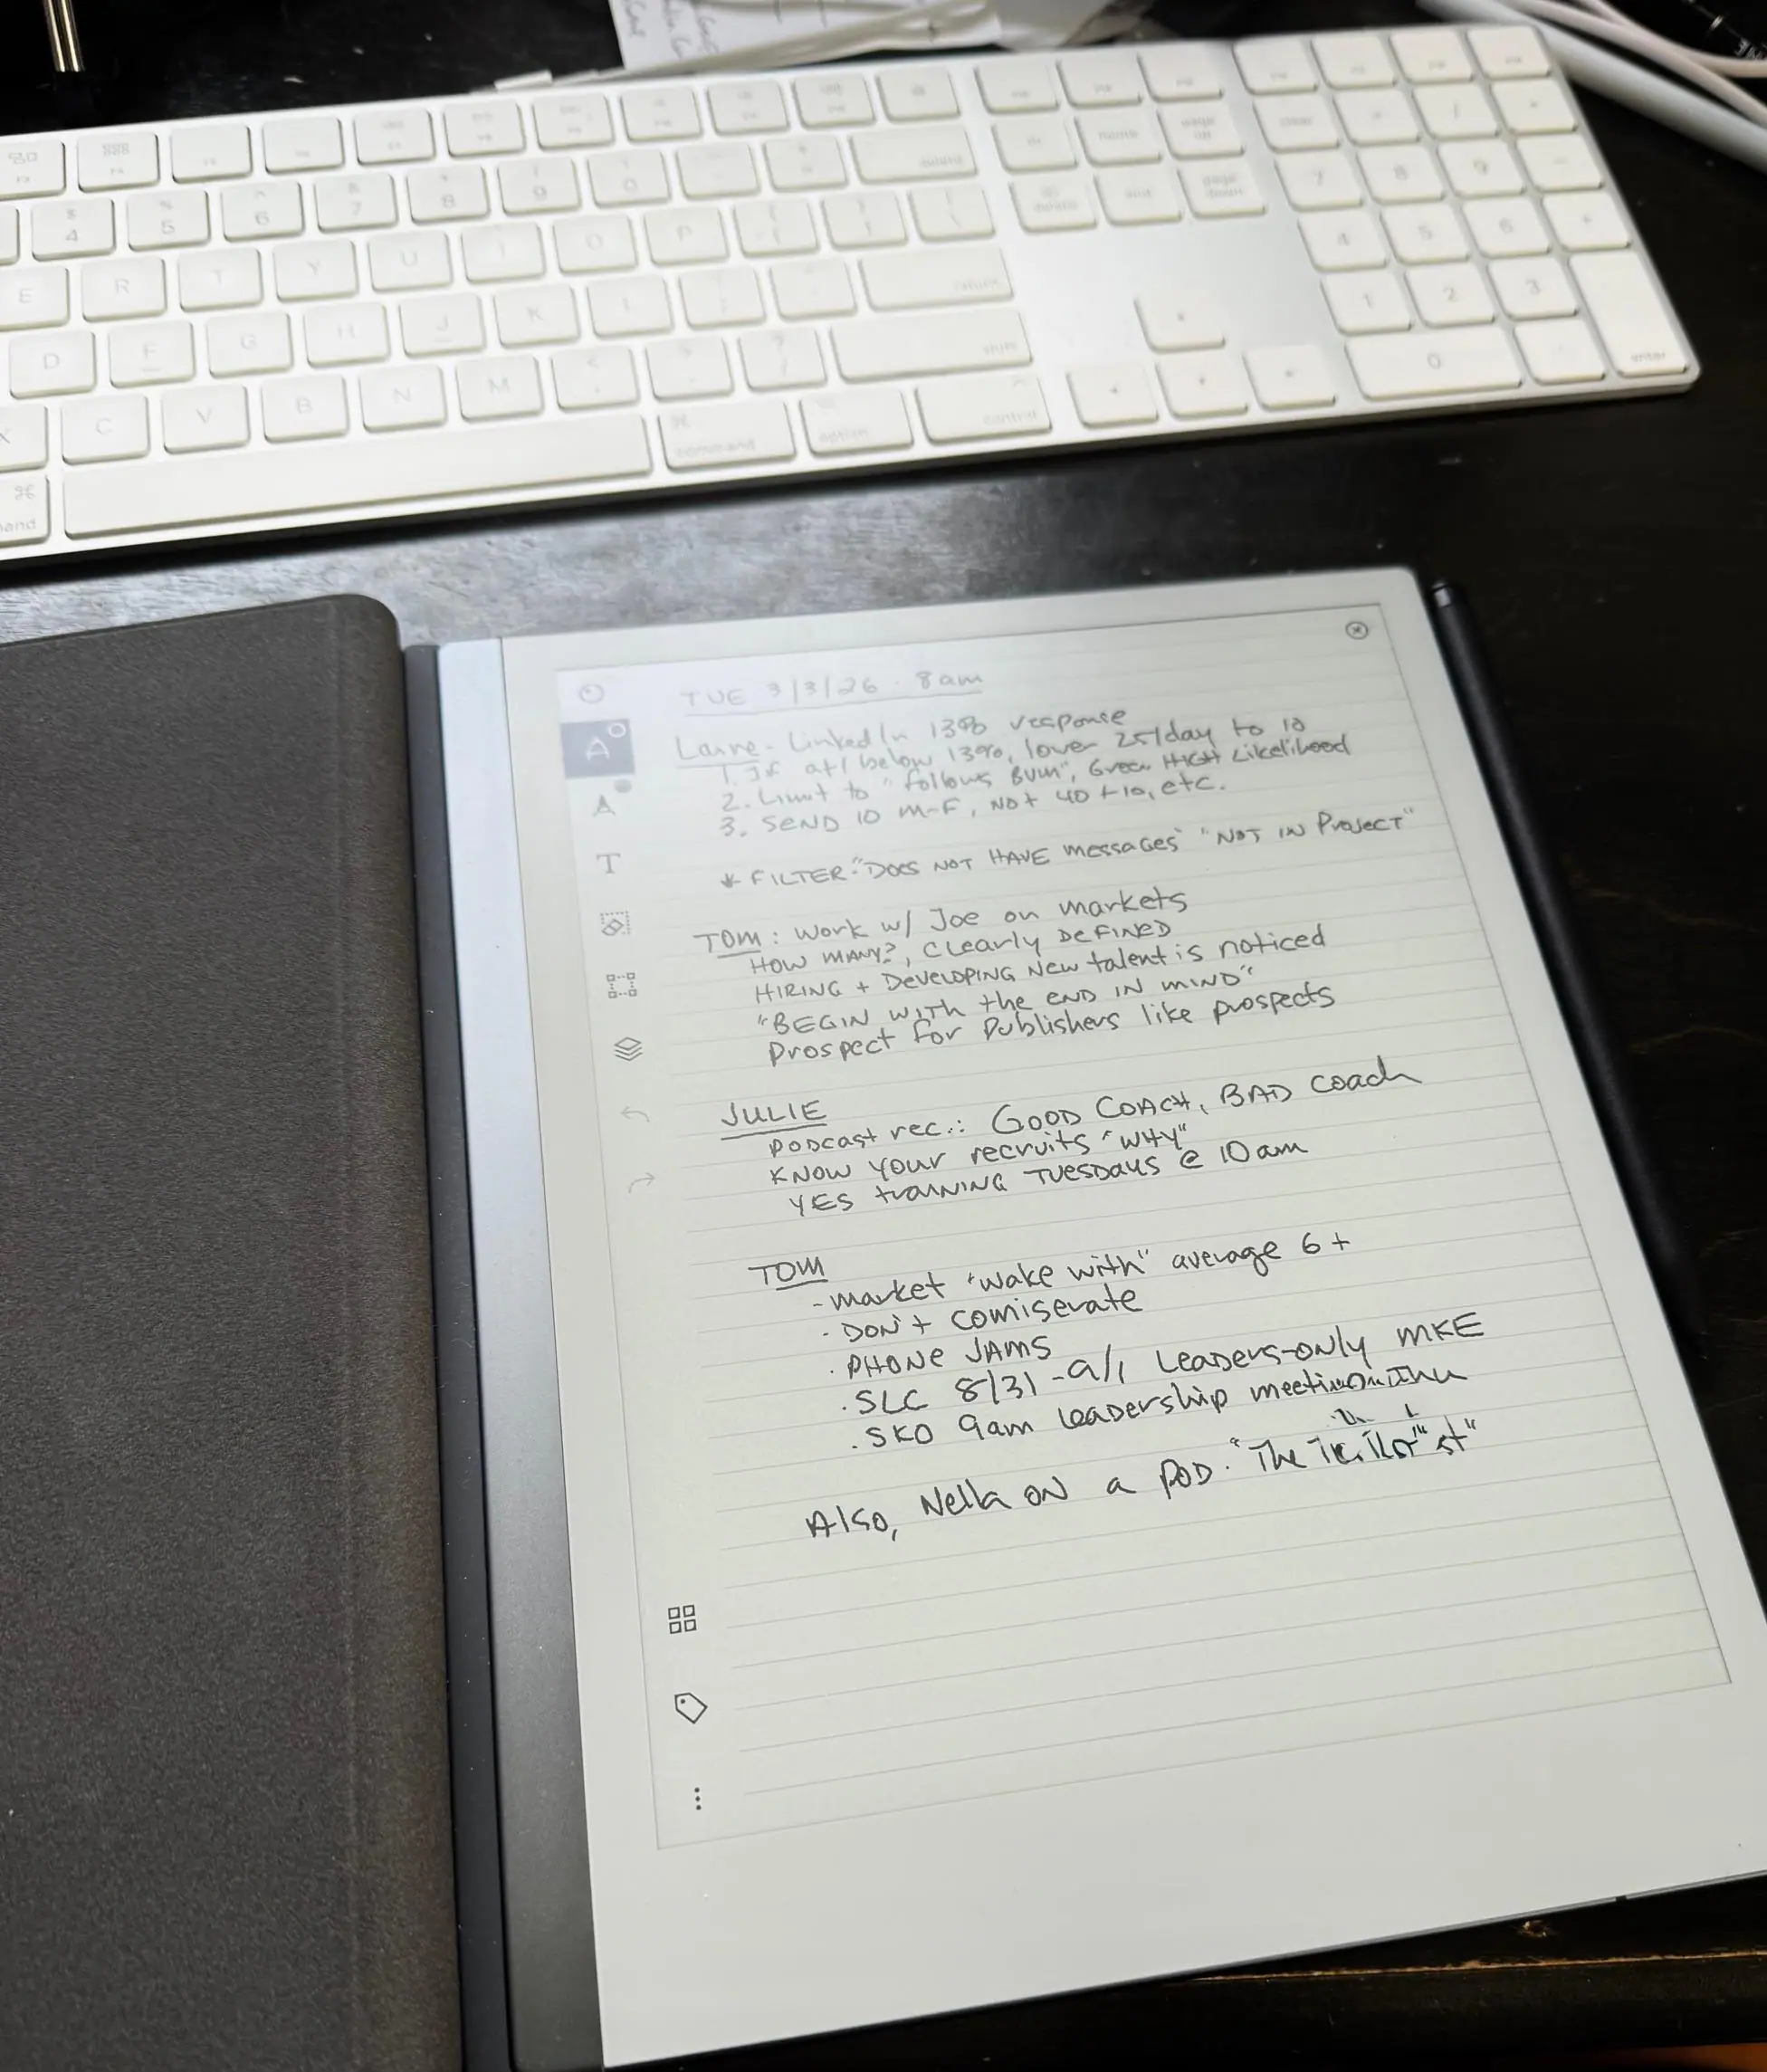 TUE 3/3/26 - 8am
LinkedIn 13% response
1. If at/below 13%, lower 25/day to 10
2. Limit to "follows BVM", Green HIGH Likelihood
3. SEND 10 M-F, NOT 40 + 10, etc.
* FILTER: "DOES NOT HAVE messages" "NOT IN PROJECT"
TOM: Work w/ Joe on markets
HOW MANY?, Clearly DEFINED
HIRING + DEVELOPING New talent is noticed
"BEGIN WITH the END IN MIND"
Prospect for Publishers like prospects
JULIE
Podcast rec.: GOOD COACH, BAD coach
KNOW YOUR recruits "WHY"
YES training TUESDAYS @ 10am
TOM
- market "wake with" average 6+
· DON'T comiserate
· PHONE JAMS
· SLC 8/31 - 9/1 Leaders-only MKE
· SKO 9am Leadership
Also, Nella ON a POD. "The
E
R
T
Y
U
I
O
P
D
F
G
H
J
K
L
X
C
V
B
N
M
command
option
control
shift
return
delete
home
page up
end
page down
clear
enter
4
5
6
7
8
9
0
7
8
9
4
5
6
1
2
3
0